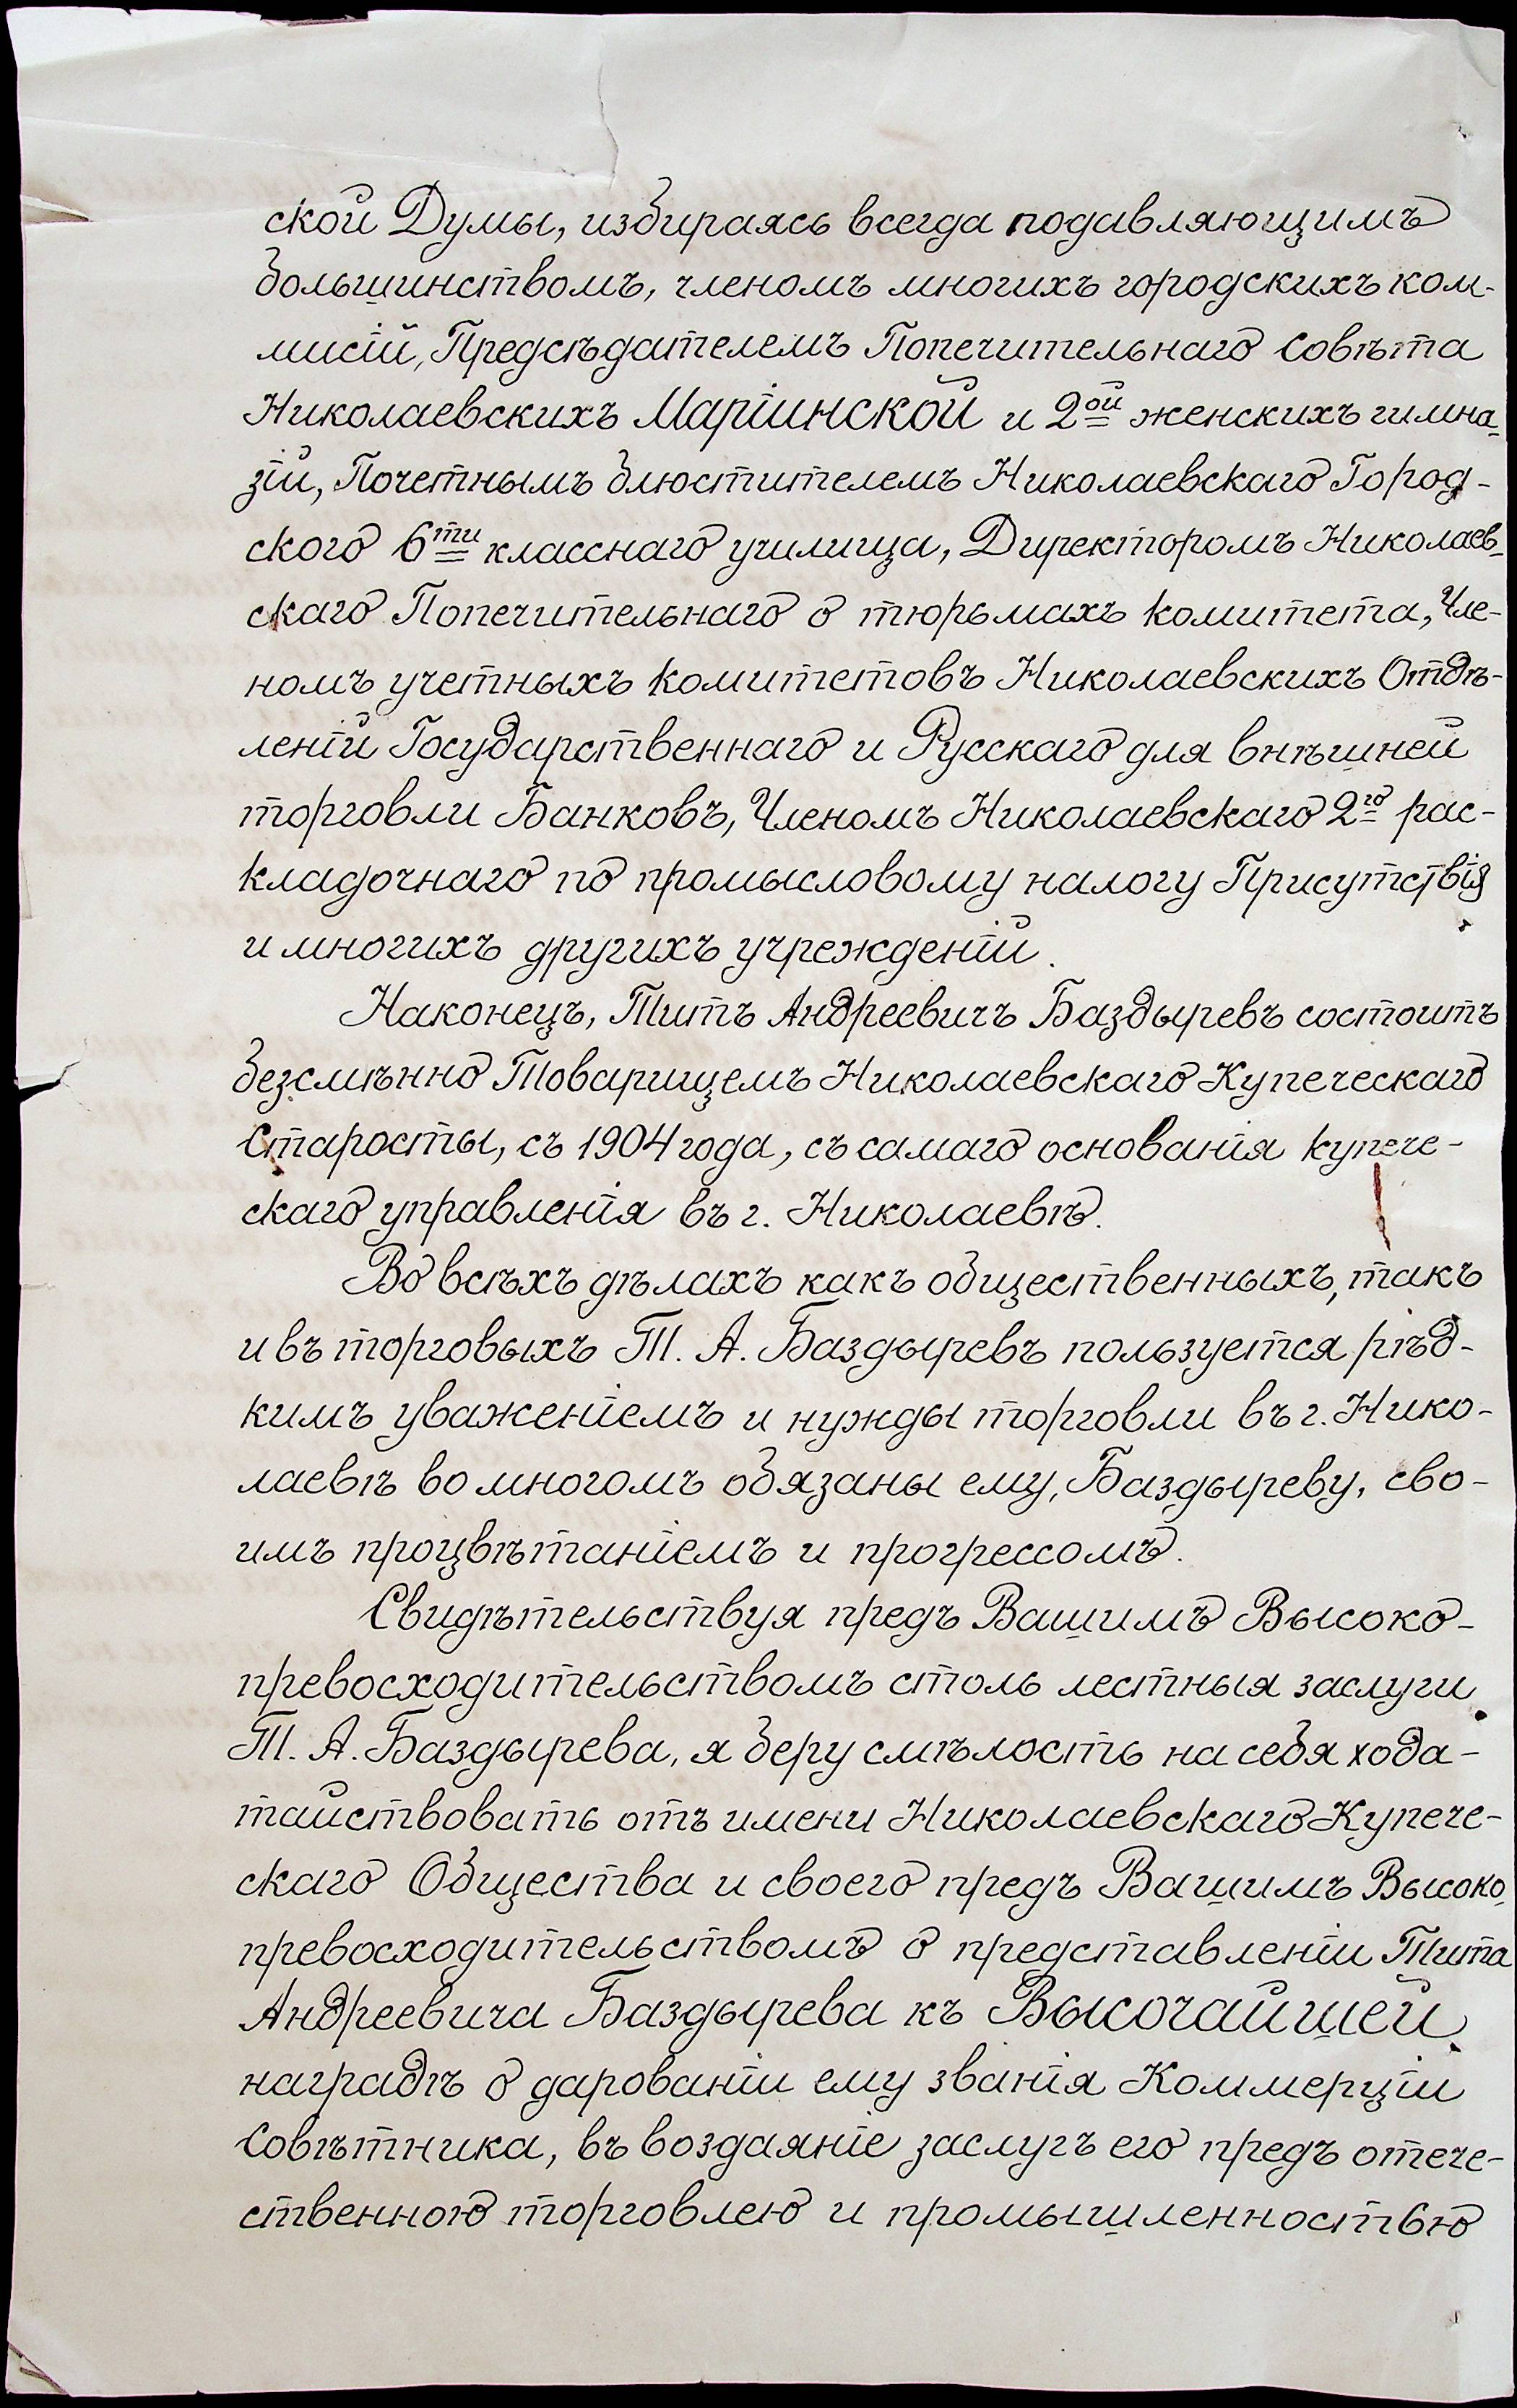 ской Думы, избираясь всегда подавляющимъ
большинствомъ, членомъ многихъ городскихъ ком-
мисій, Предсѣдателемъ Попечительнаго Совѣта
Николаевскихъ Маріинской и 2ой женскихъ гимна-
зій, Почетнымъ блюстителемъ Николаевскаго Город-
ского 6ти класснаго училища, Директоромъ Николаев-
скаго Попечительнаго о тюрьмахъ комитета, Чле-
номъ учетныхъ комитетовъ Николаевскихъ Отдѣ-
леній Государственнаго и Русскаго для внѣшней
торговли Банковъ, Членомъ Николаевскаго 2го рас-
кладочнаго по промысловому налогу Присутствія
и многихъ другихъ учрежденій.
Наконецъ, Титъ Андреевичъ Баздыревъ состоитъ
безсмѣнно Товарищемъ Николаевскаго Купеческаго
Старосты, съ 1904 года, съ самаго основанія купече-
скаго управленія въ г. Николаевѣ.
Во всѣхъ дѣлахъ какъ общественныхъ, такъ
и въ торговыхъ Т. А. Баздыревъ пользуется рѣд-
кимъ уваженіемъ и нужды торговли въ г. Нико-
лаевѣ во многомъ обязаны ему, Баздыреву, сво-
имъ процвѣтаніемъ и прогрессомъ.
Свидѣтельствуя предъ Вашимъ Высоко-
превосходительствомъ столь лестныя заслуги
Т. А. Баздырева, я беру смѣлость на себя хода-
тайствовать отъ имени Николаевскаго Купече-
скаго Общества и своего предъ Вашимъ Высоко-
превосходительствомъ о представленіи Тита
Андреевича Баздырева къ Высочайшей
наградѣ о дарованіи ему званія Коммерціи
Совѣтника, въ воздаяніе заслугъ его предъ отече-
ственною торговлею и промышленностью